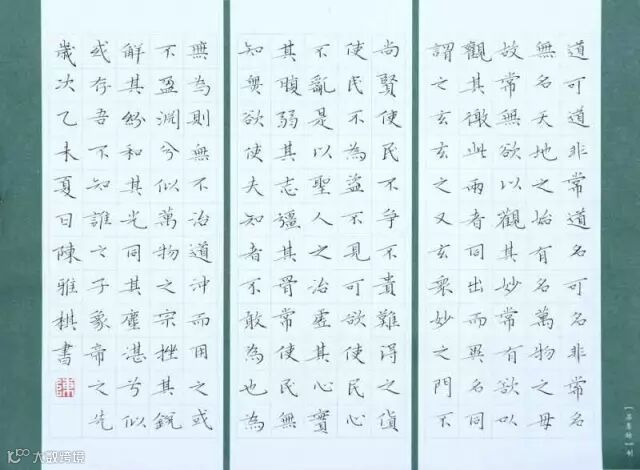 道可道非常道名可名非常名
無名天地之始有名萬物之母
故常無欲以觀其妙常有欲以
觀其徼此兩者同出而異名同
謂之玄玄之又玄衆妙之門不
尚賢使民不爭不貴難得之貨
使民不為盜不見可欲使民心
不亂是以聖人之治虛其心實
其腹弱其志彊其骨常使民無
知無欲使夫知者不敢為也為
無為則無不治道沖而用之或
不盈淵兮似萬物之宗挫其銳
解其紛和其光同其塵湛兮似
或存吾不知誰之子象帝之先
歲次乙未夏日陳雅棋書
大数跨境